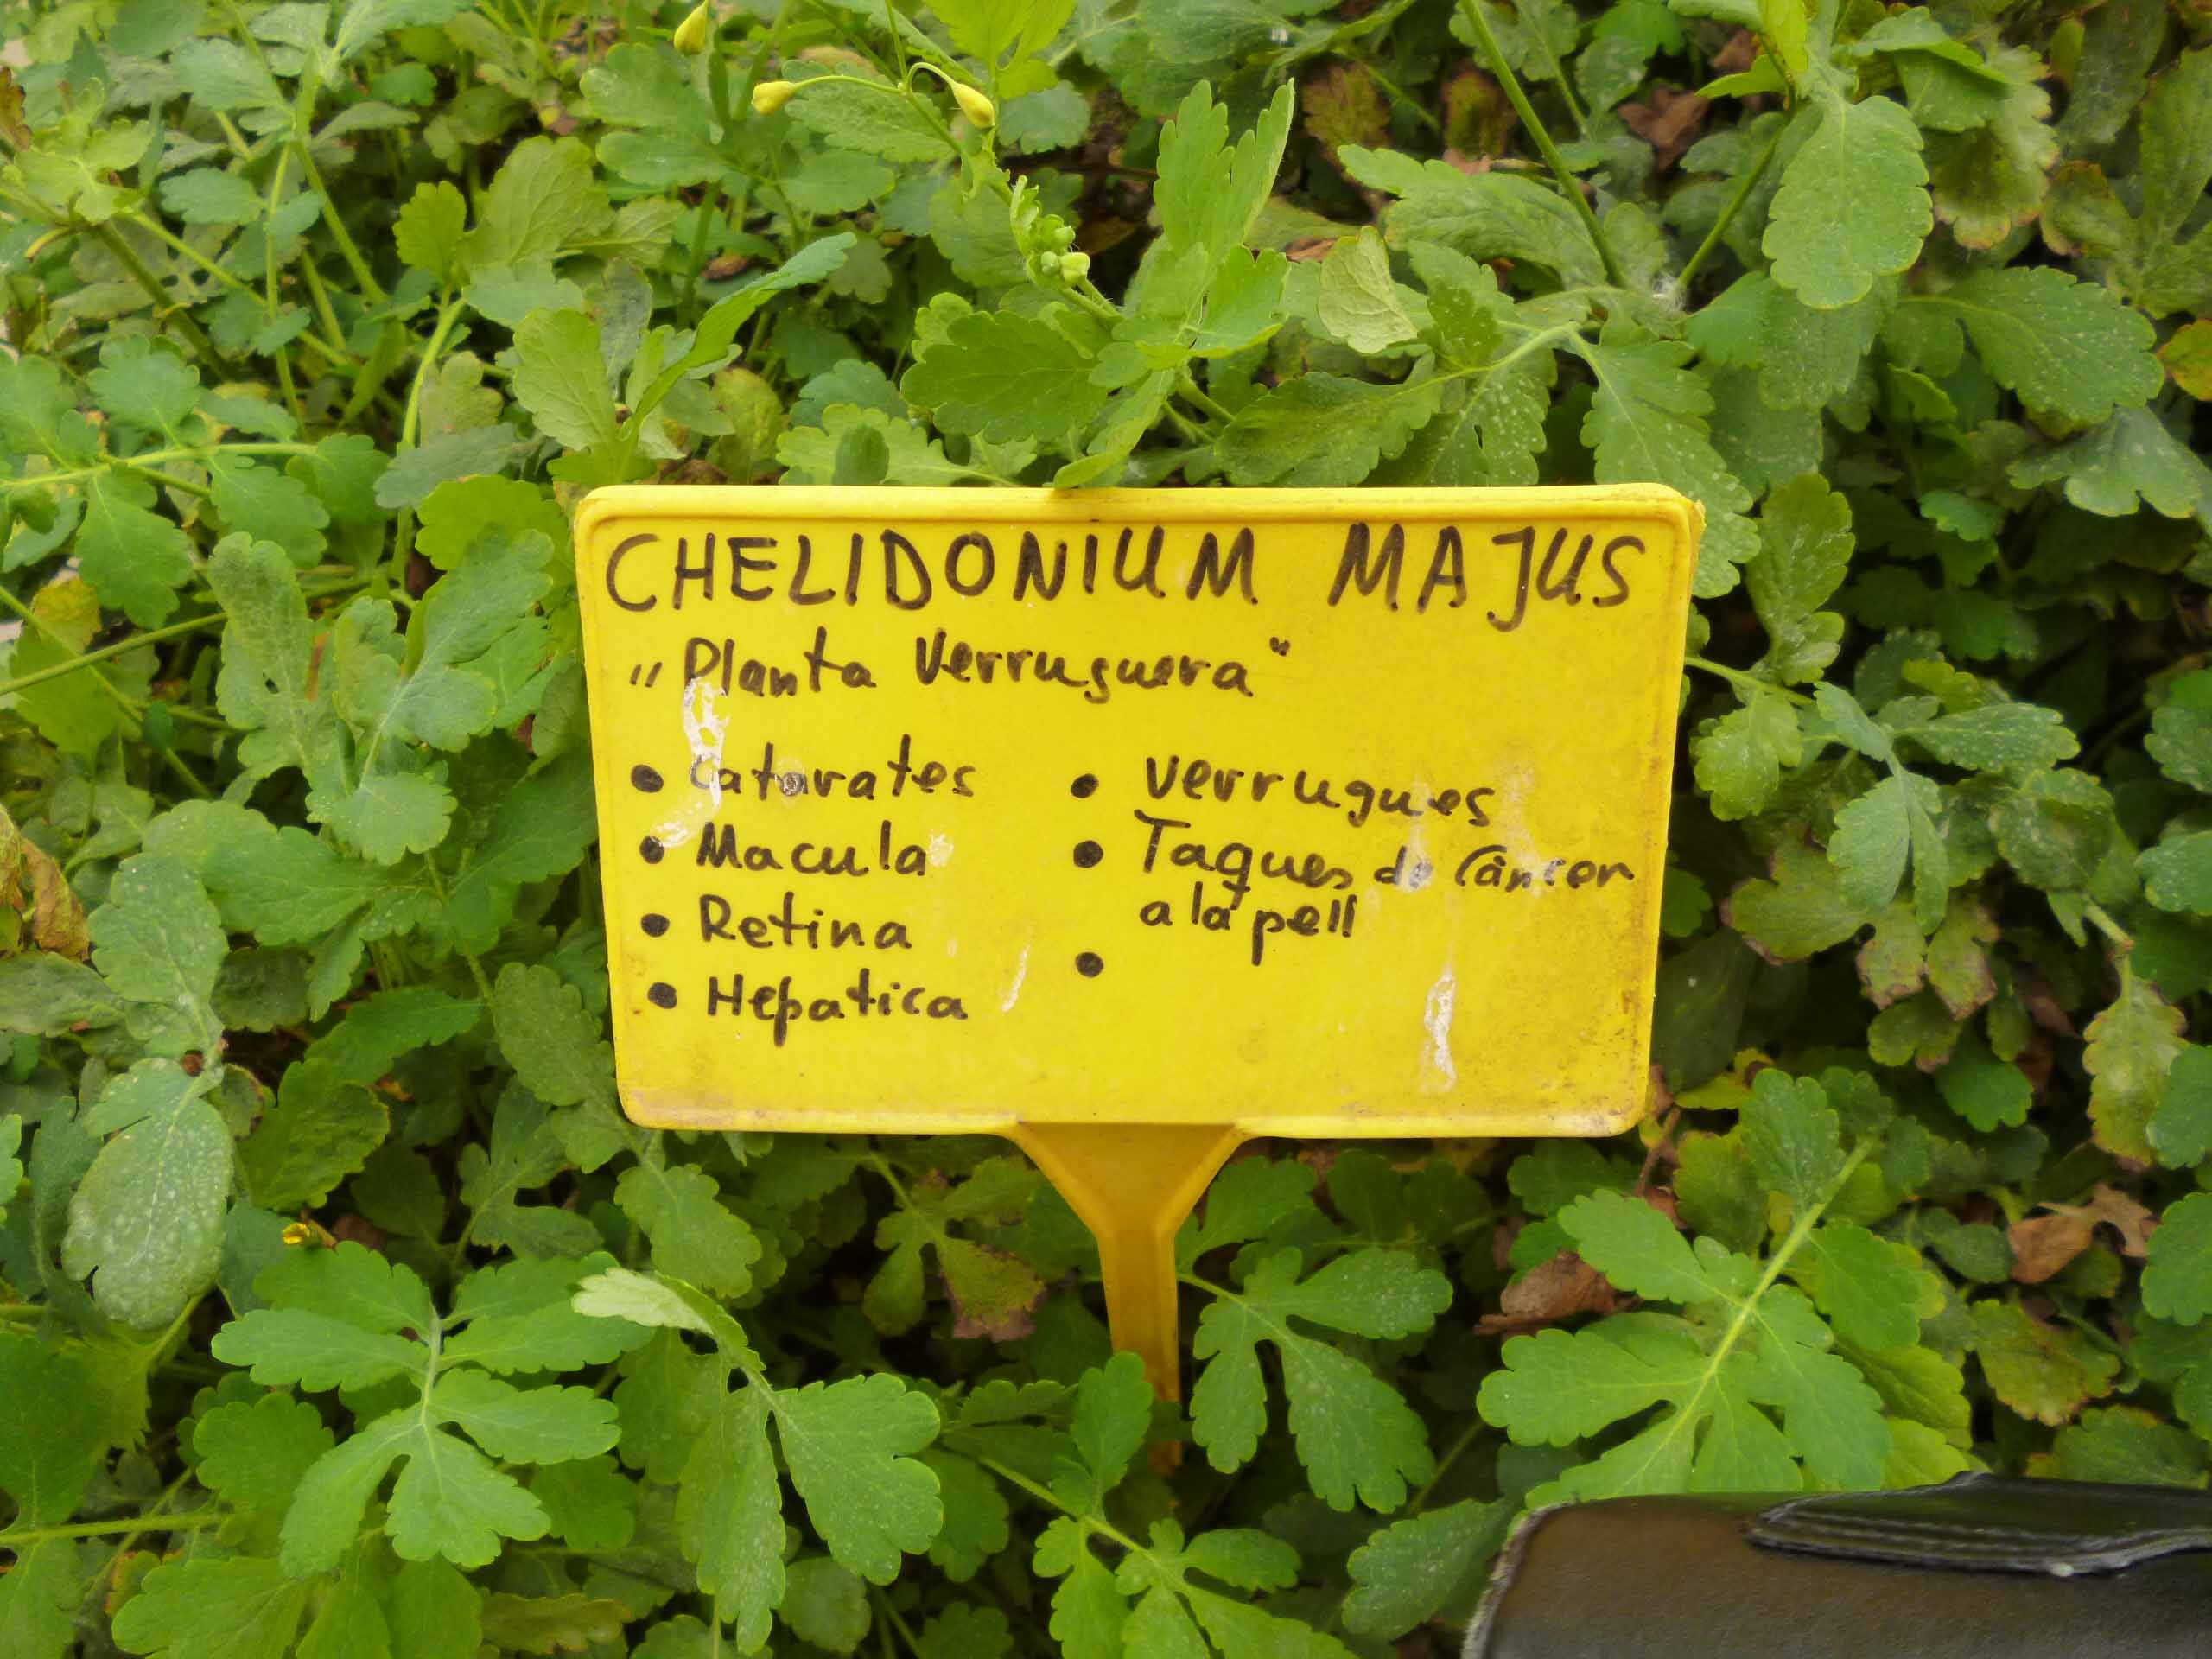 CHELIDONIUM MAJUS
„Planta Verruguera"
• Catarates
• Macula
• Retina
• Hepatica
• Verrugues
• Taques de Càncer
a la pell
•